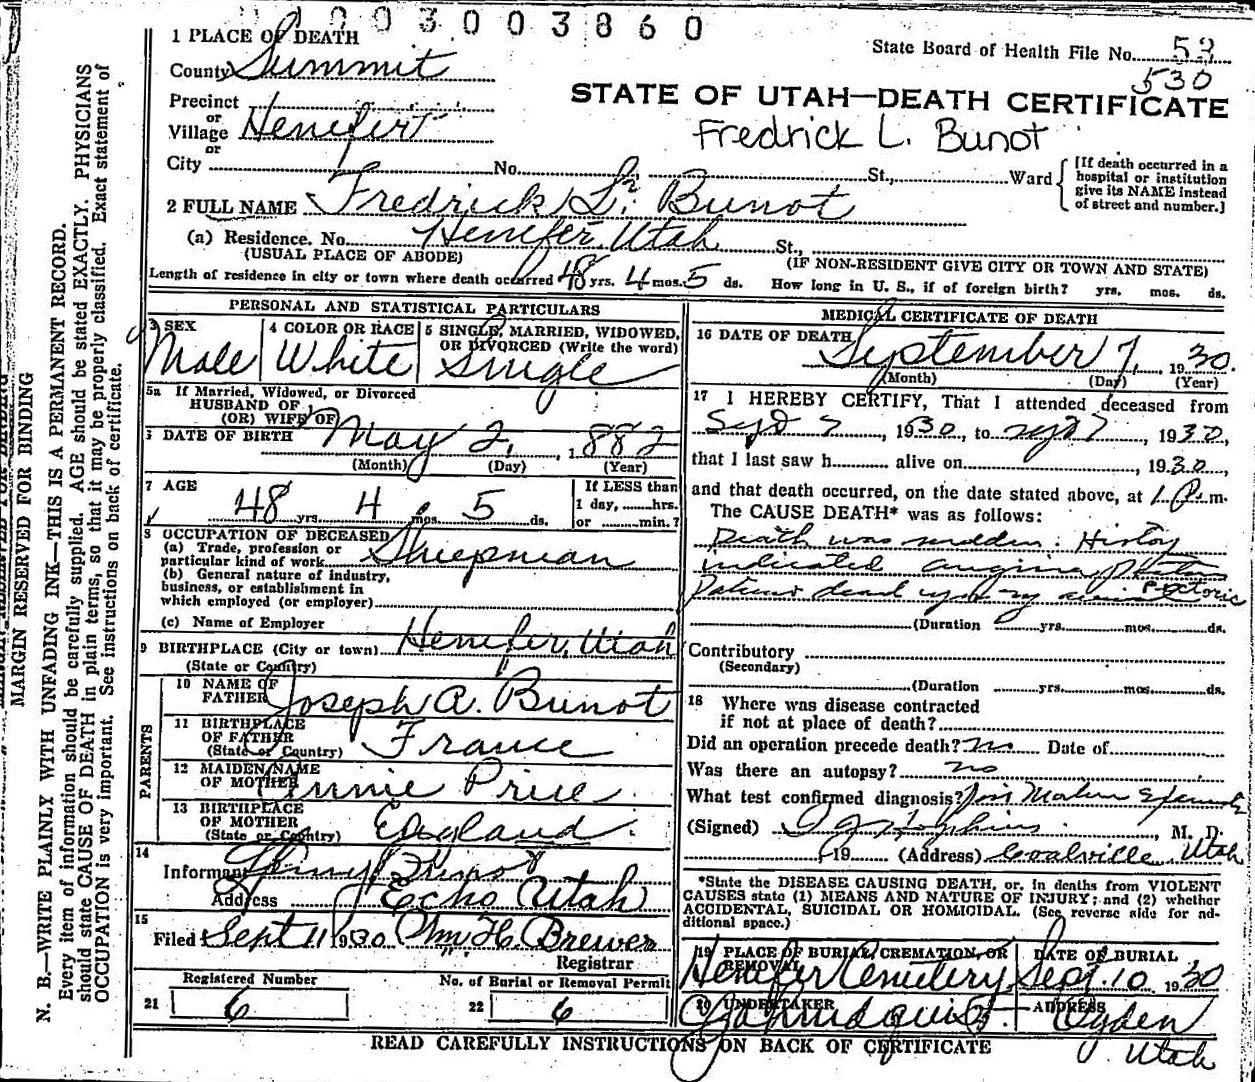 003003860
1 PLACE OF DEATH
State Board of Health File No. 53
County Summit
530
STATE OF UTAH—DEATH CERTIFICATE
Precinct
or
Village Henefer
Fredrick L. Bunot
or
City No. St., Ward
[If death occurred in a
hospital or institution
give its NAME instead
of street and number.]
2 FULL NAME Fredrick L. Bunot
(a) Residence. No. Henefer, Utah St.,
(USUAL PLACE OF ABODE) (IF NON-RESIDENT GIVE CITY OR TOWN AND STATE)
Length of residence in city or town where death occurred 48 yrs. 4 mos. 5 ds. How long in U. S., if of foreign birth? yrs. mos. ds.
PERSONAL AND STATISTICAL PARTICULARS
3 SEX
Male
4 COLOR OR RACE
White
5 SINGLE, MARRIED, WIDOWED,
OR DIVORCED (Write the word)
Single
5a If Married, Widowed, or Divorced
HUSBAND OF
(OR) WIFE OF
6 DATE OF BIRTH May 2, 1882
(Month) (Day) (Year)
7 AGE
48 yrs. 4 mos. 5 ds.
If LESS than
1 day, hrs.
or min.?
8 OCCUPATION OF DECEASED
(a) Trade, profession or
particular kind of work Sheepman
(b) General nature of industry,
business, or establishment in
which employed (or employer)
(c) Name of Employer
9 BIRTHPLACE (City or town) Henefer, Utah
(State or Country) "
PARENTS
10 NAME OF
FATHER Joseph A. Bunot
11 BIRTHPLACE
OF FATHER
(State or Country) France
12 MAIDEN NAME
OF MOTHER Annie Price
13 BIRTHPLACE
OF MOTHER
(State or Country) England
14
Informant Bunot
Address Echo Utah
15
Filed Sept 11 1930 Wm H. Brewer
Registrar
Registered Number
21 6
No. of Burial or Removal Permit
22 6
MEDICAL CERTIFICATE OF DEATH
16 DATE OF DEATH September 7, 1930.
(Month) (Day) (Year)
17 I HEREBY CERTIFY, That I attended deceased from
Sept 7, 1930, to Sept 7, 1930,
that I last saw h alive on , 1930,
and that death occurred, on the date stated above, at 1 P.m.
The CAUSE DEATH* was as follows:
Death was sudden. History
indicated angina
Pectoris
Patient dead upon my arrival
(Duration yrs. mos. ds.
Contributory
(Secondary)
(Duration yrs. mos. ds.
18 Where was disease contracted
if not at place of death?
Did an operation precede death? no Date of
Was there an autopsy? no
What test confirmed diagnosis?
(Signed) Hopkins, M. D.
, 19 (Address) Coalville Utah
*State the DISEASE CAUSING DEATH, or, in deaths from VIOLENT
CAUSES state (1) MEANS AND NATURE OF INJURY; and (2) whether
ACCIDENTAL, SUICIDAL OR HOMICIDAL. (See reverse side for ad-
ditional space.)
19 PLACE OF BURIAL, CREMATION, OR
REMOVAL
Henefer Cemetery
DATE OF BURIAL
Sept. 10 1930
20 UNDERTAKER
ADDRESS
Ogden
Utah
READ CAREFULLY INSTRUCTIONS ON BACK OF CERTIFICATE
MARGIN RESERVED FOR BINDING
N. B.—WRITE PLAINLY WITH UNFADING INK—THIS IS A PERMANENT RECORD.
Every item of information should be carefully supplied. AGE should be stated EXACTLY. PHYSICIANS
should state CAUSE OF DEATH in plain terms, so that it may be properly classified. Exact statement of
OCCUPATION is very important. See instructions on back of certificate.